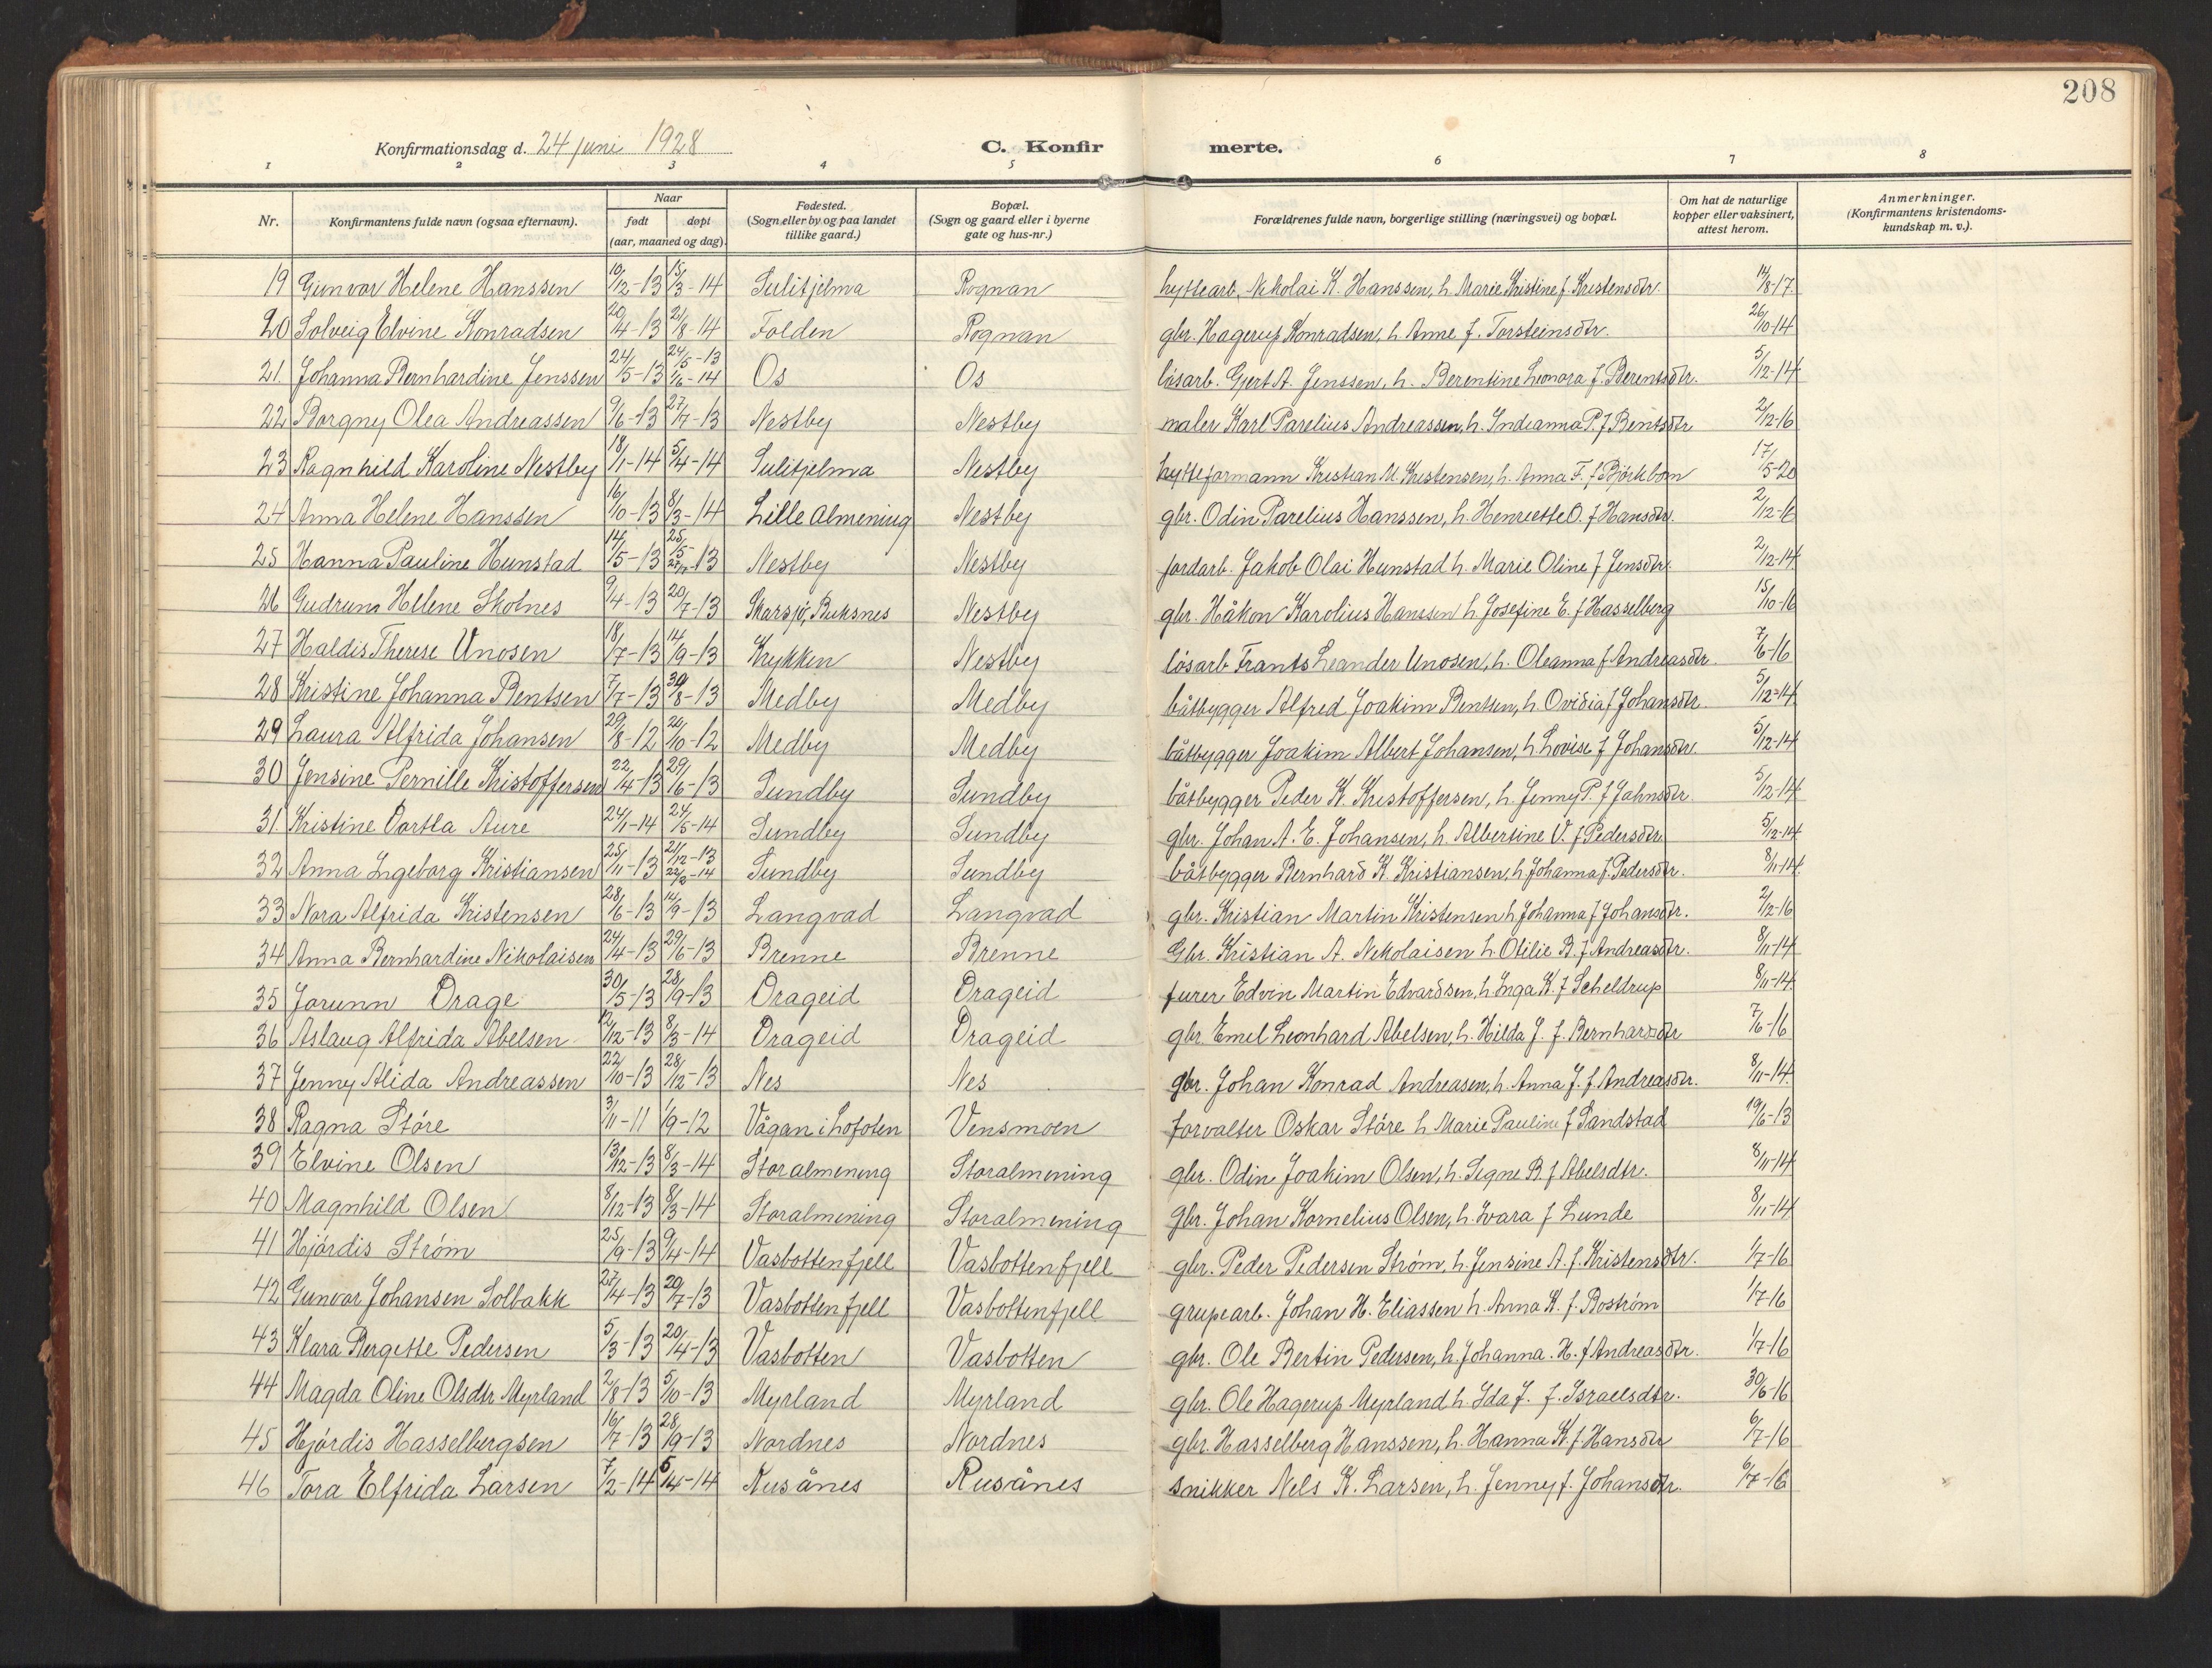 208
Konfirmationsdag d. 24 juni 1928 C. Konfirmerte.
1 2 3 4 5 6 7 8
Nr. Konfirmantens fulde navn (ogsaa efternavn). Naar født døpt (aar, maaned og dag). Fødested. (Sogn eller by og paa landet tillike gaard.) Bopæl. (Sogn og gaard eller i byerne gate og hus-nr.) Forældrenes fulde navn, borgerlige stilling (næringsvei) og bopæl. Om hat de naturlige kopper eller vaksinert, attest herom. Anmerkninger. (Konfirmantens kristendoms-kundskap m. v.).
19 Gunvor Helene Hanssen 10/12-13 15/3-14 Sulitjelma Rognan hyttearb. Nikolai K. Hanssen, h. Marie Kristine f. Kristensdtr. 14/8-17
20 Solveig Elvine Konradsen 20/4-13 21/8-14 Folden Rognan gbr. Hagerup Konradsen, h. Anne f. Torsteinsdtr. 26/10-14
21. Johanna Bernhardine Jenssen 24/5-13 24/5-13 1/6-14 Os Os løsarb. Gjert A. Jenssen, h. Berentine Leonora f. Berentsdtr. 5/12-14
22 Borgny Olea Andreassen 9/6-13 27/7-13 Nestby Nestby maler Karl Parelius Andreassen, h. Indianna P. f Bentsdtr 2/12-16
23 Ragnhild Karoline Nestby 18/1-14 5/4-14 Sulitjelma Nestby hytteformann Kristian M. Kristensen, h. Anna F. f Björkbom 17/5-20
24 Anna Helene Hanssen 16/10-13 8/3-14 Lille Almening Nestby gbr. Odin Parelius Hanssen, h. Henriette O. f Hansdtr. 2/12-6
25 Hanna Pauline Hunstad 14/5-13 25/5 -13 Nestby Nestby jordarb. Jakob Olai Hunstad h. Marie Oline f Jensdtr. 2/12-14
26 Gudrun Helene Skotnes 9/4-13 20/7-13 Skarsjø, Buksnes Nestby gbr. Håkon Karolius Hanssen h. Josefine E. f Hasselberg 15/10-16
27 Haldis Therese Unosen 18/7-13 14/9-13 Krykken Nestby løsarb Frants Leander Unosen, h. Oleanna f. Andreasdtr. 7/6-16
28 Kristine Johanna Bentsen 7/7-13 30/8-13 Medby Medby båtbygger Alfred Joakim Bentsen, h Ovidia f Johansdtr. 5/12-14
29 Laura Alfrida Johansen 29/8-12 20/10-12 Medby Medby båtbygger Joakim Albert Johansen, h Lovise f Johansdtr. 5/12-14
30 Jensine Pernille Kristoffersen 22/4-13 29/6-13 Sundby Sundby båtbygger Peder K. Kristoffersen, h. Jenny P. f Jahnsdtr. 5/12-14
31. Kristine Dortla Aure 24/1-14 24/5-14 Sundby Sundby gbr. Johan A. E. Johansen, h. Albertine V. f Pedersdtr. 5/12-14
32 Anna Ingeborg Kristiansen 25/11-13 21/12-13 22/2-14 Sundby Sundby båtbygger Bernhard K. Kristiansen, h Johanna f. Pedersdtr. 8/11-14.
33 Nora Alfrida Kristensen 28/6-13 14/9-13 Langvad Langvad gbr. Kristian Martin Kristensen h Johanna f Johansdtr. 2/12-16
34 Anna Bernhardine Nikolaisen 24/4-13 29/6-13 Brenne Brenne Gbr. Kristian A. Nikolaisen h. Otilie B. f Andreasdtr. 8/11-14
35 Jorunn Drage 30/5-13 28/9-13 Drageid Drageid furer Edvin Martin Edvardsen, h. Inga K. f Scheldrup 8/11-14
36 Aslaug Alfrida Abelsen 12/12-13 8/3-14 Drageid Drageid gbr. Emil Leonhard Abelsen, h. Hilda J. f. Bernhardsdtr 7/6-16
37 Jenny Alida Andreassen 22/10-13 28/12-13 Nes Nes gbr. Johan Konrad Andreasen, h. Anna J. f. Andreasdtr. 8/11-14.
38 Ragna Støre 3/11-11 1/9-12 Vågan i Lofoten Vensmoen forvalter Oskar Støre h Marie Pauline f Sandstad 19/6-13
39 Elvine Olsen 13/12-13 8/3-14 Storalmening Storalmening gbr. Odin Joakim Olsen, h. Signe B. f Abelsdtr. 8/11-14
40 Magnhild Olsen 8/12-13 8/3-14 Storalmening Storalmening gbr. Johan Kornelius Olsen, h. Ivara f Lunde 8/11-14
41 Hjördis Strøm 25/9-13 9/4-14 Vasbottenfjell Vasbottenfjell gbr. Peder Pedersen Strøm, h. Jensine A. f. Kristensdtr. 1/7-16
42 Gunvor Johansen Solbakk 27/4-13 20/7-13 Vasbottenfjell Vasbottenfjell grupearb. Johan H. Eliassen h. Anna K. f. Boström 1/7-16
43 Klara Bergitte Pedersen 5/3-13 20/4-13 Vasbotten Vasbotten gbr. Ole Bertin Pedersen, h. Johanna. H. f Andreasdtr. 1/7-16
44 Magda Oline Olsdtr Myrland 2/8-13 5/10-13 Myrland Myrland gbr. Ole Hagerup Myrland h. Ida J. f. Israelsdtr. 30/6-16
45 Hjördis Hasselbergsen 16/7-13 28/9-13 Nordnes Nordnes gbr. Hasselberg Hanssen, h. Hanna K. f. Hansdtr 6/7-16
46 Tora Elfrida Larsen 7/2-14 -14 Rusånes Rusånes snikker Nels K. Larsen, h. Jenny f. Johansdtr. 6/7-16